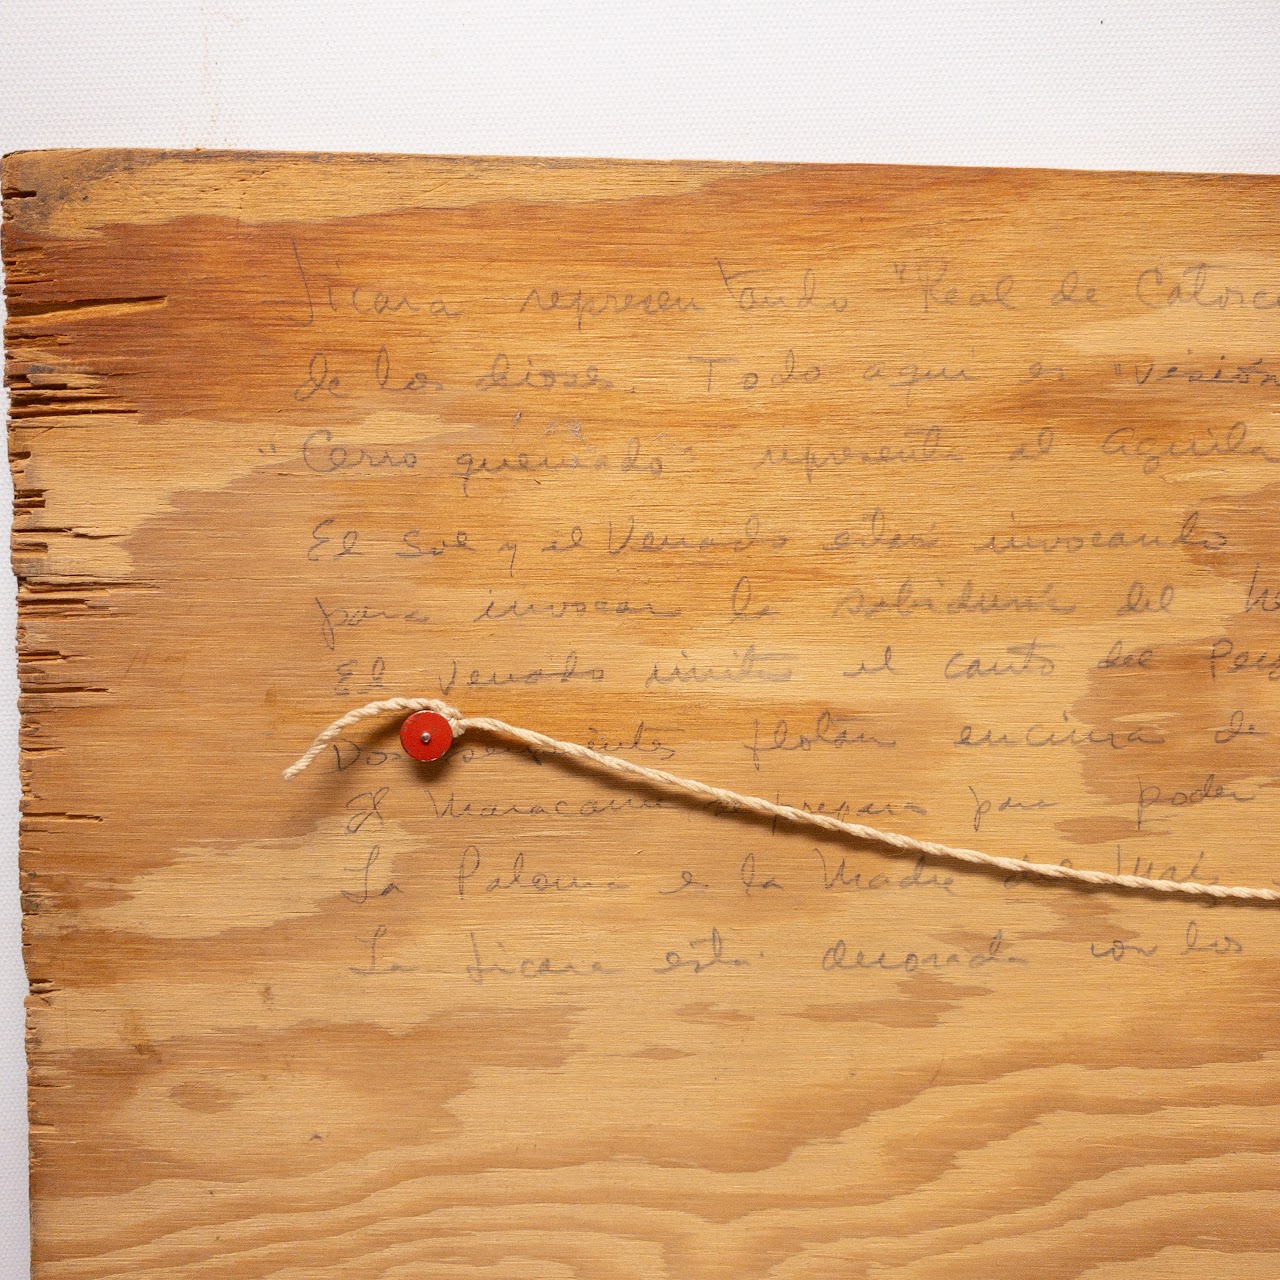 Jícara representando "Real de Catorce
de los dioses. Todo aqui es "visión
"Cerro quemado" representa al Aguila
El Sol y el Venado están invocando
para invocar la sabiduría del
El Venado invita el canto del
Dos serpientes flotan encima de
El se prepara para poder
La Paloma es la Madre del Maíz
La Jícara está decorada con los